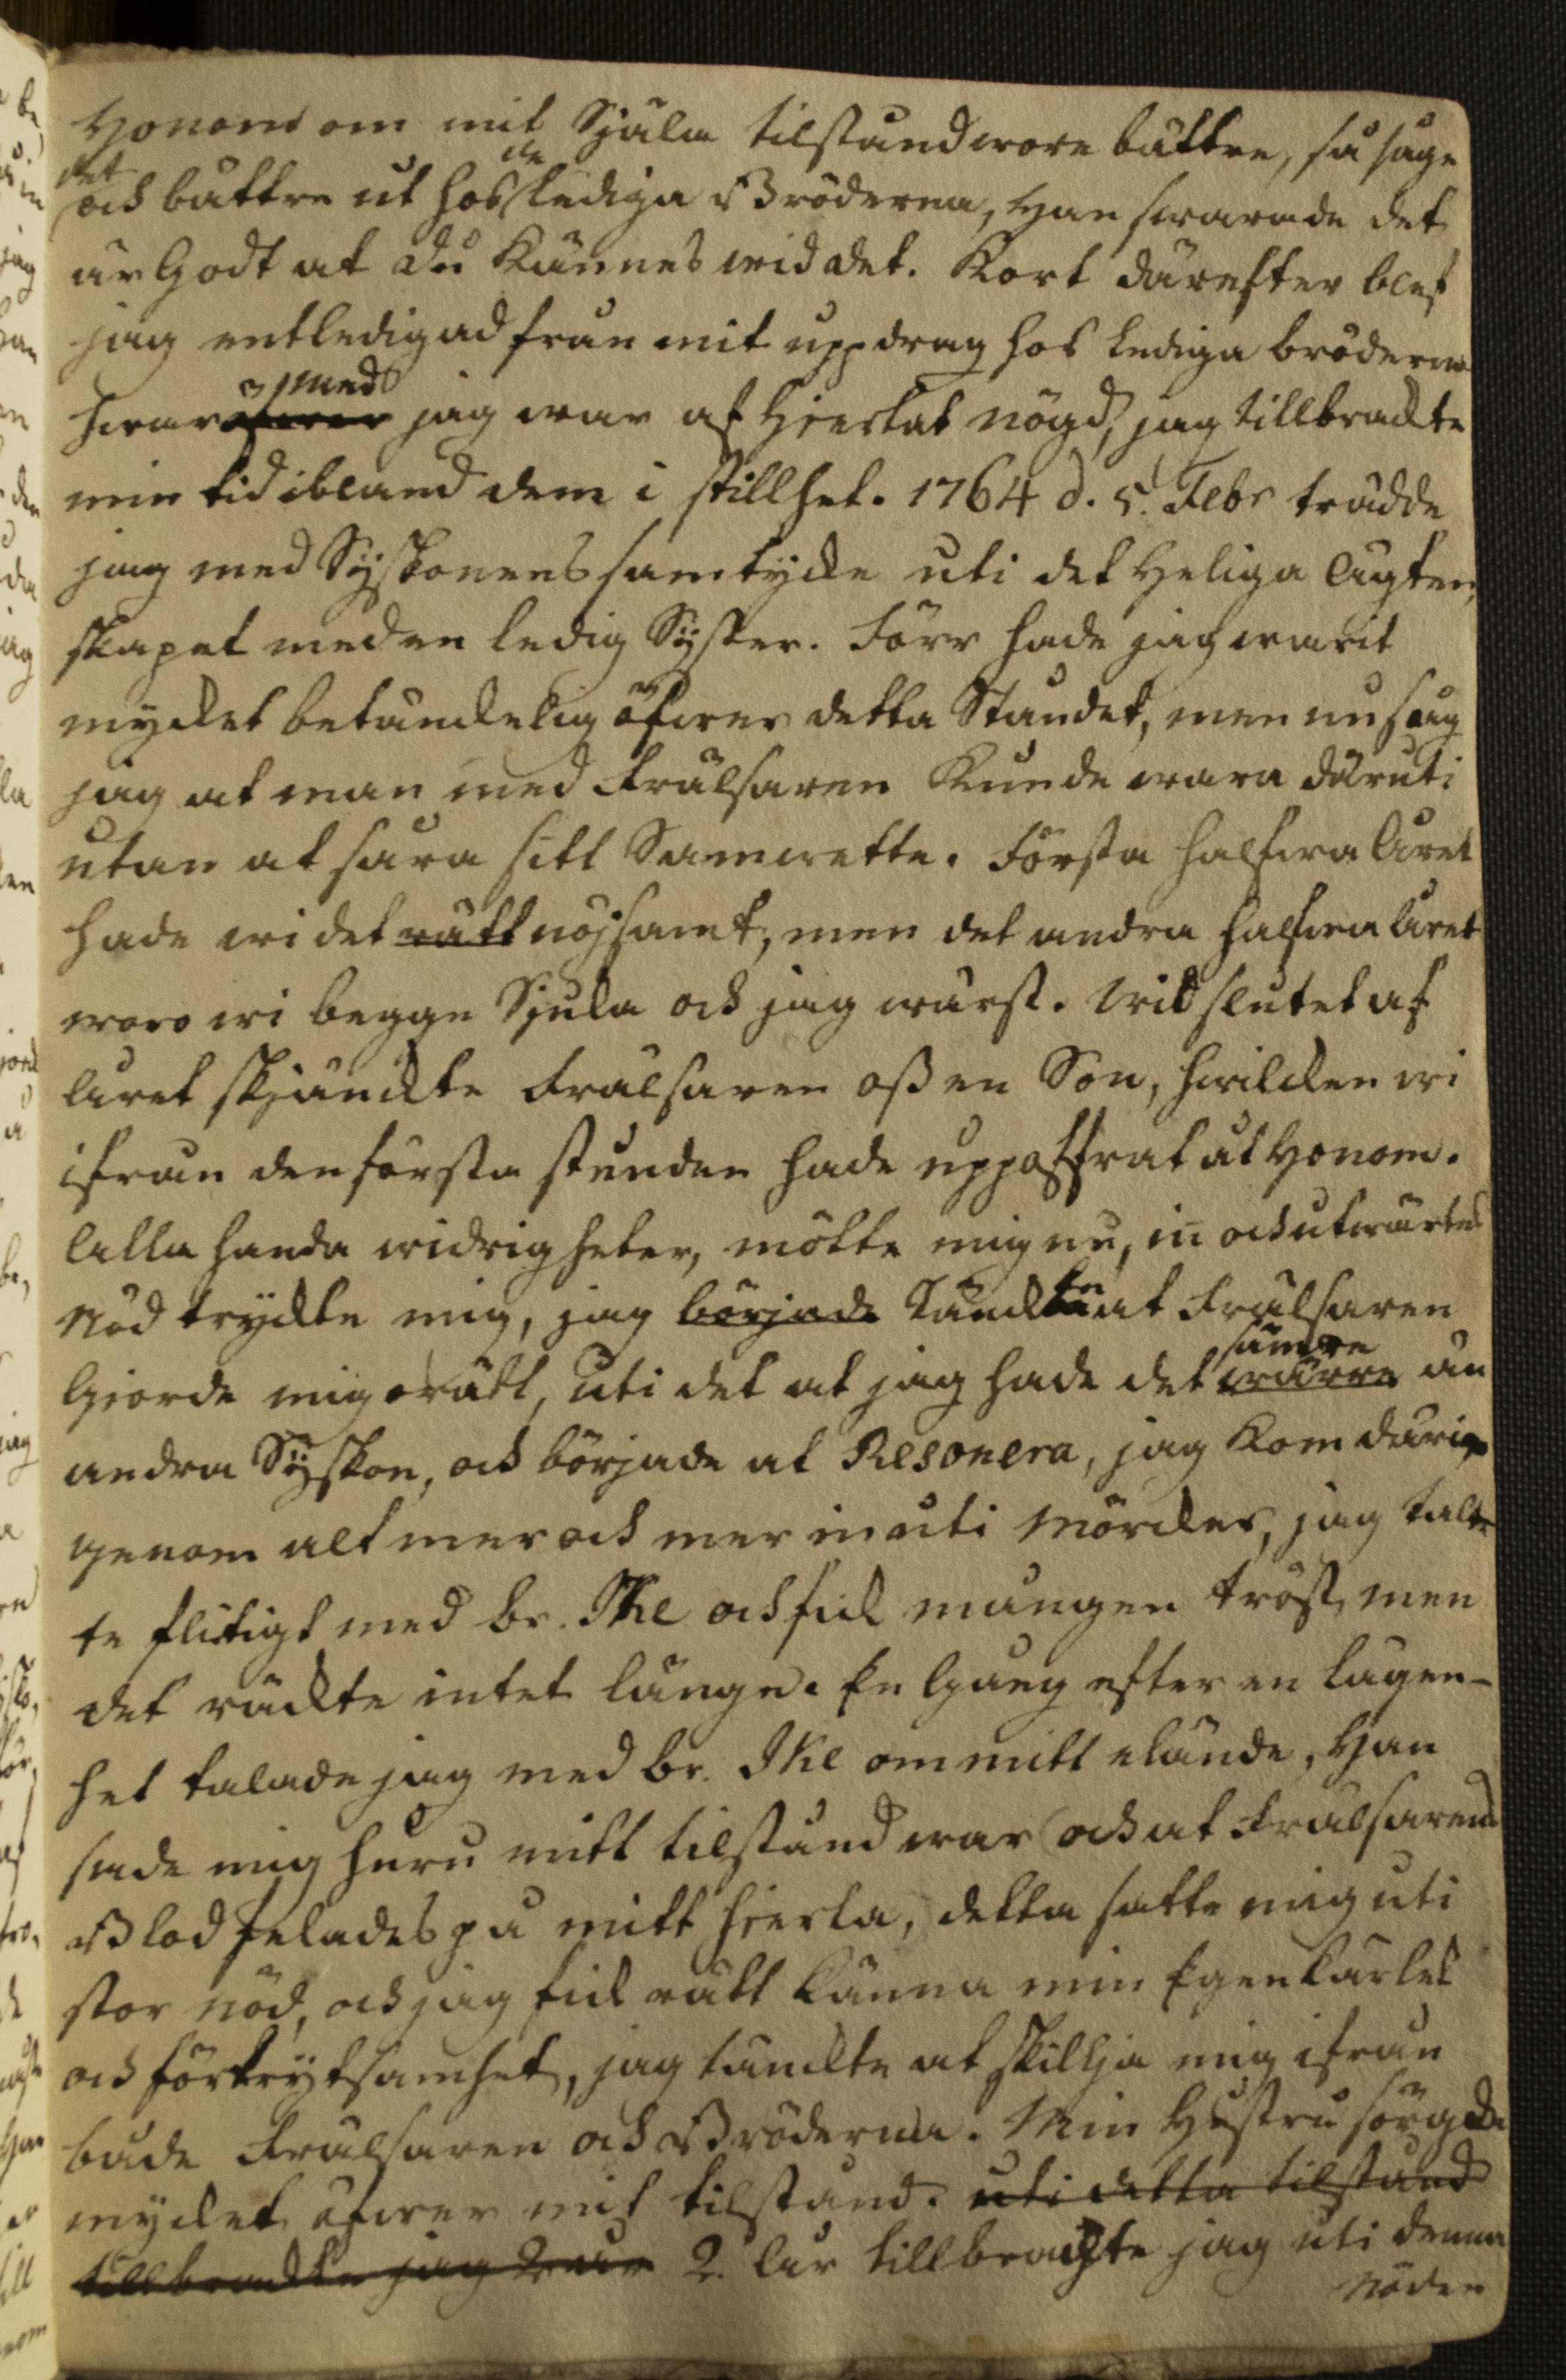 Honom om mit Själa tilstånd wore bättre, så såge
det
och bättre ut hos de lediga Bröderna, Han swarade det
är Godt at du Kännes wid det. Kort därefter blef
jag entledigad från mit uppdrag hos lediga bröderna
hwaröfwer med jag war af Hiertat nögd, jag tillbrackte
min tid ibland dem i stillhet. 1764 d. 5. Febr trädde
jag med Syskonens samtycke uti det Heliga Ägten,
skapet med en ledig Syster. Förr hade jag warit
mycket betänckelig öfwer detta Ståndet, men nu såg
jag at man med Frälsaren Kunde wara däruti
utan at såra sitt Samwette. Första halfwa Året
hade wi det rätt nöjsamt, men det andra halfwa Året
woro wi begge Sjuka och jag wärst. Wid slutet af
Året skjänckte Frälsaren oss en Son, hwilcken wi
ifrån den första stunden hade uppoffrat åt Honom.
Alla handa widrigheter, mötte mig nu, in och utwärtes
Nöd tryckte mig, jag började Tänckte at Frälsaren
Giorde mig orätt, uti det at jag hade det wärre sämre än
andra Syskon, och började at Resonera, jag Kom däri,,
genom alt mer och mer in uti Mörcker, jag tal,,
te flitigt med br. Ike och fick mången tröst, men
det räckte intet länge. En Gång efter en lägen-
het talade jag med br. Ike om mitt elände, Han
sade mig huru mitt tilstånd war och at Frälsarens
Blod felades på mitt hierta, detta satte mig uti
stor nöd, och jag fick rätt känna min Egenkärlek
och förtrytsamhet, jag tänckte at skillja mig ifrån
både Frälsaren och Bröderna. Min Hustru sörgde
mycket öfwer mit tilstånd. uti detta tilstånd
tillbrackte jag 2 år 2. År tillbragte jag uti denna
Nöden